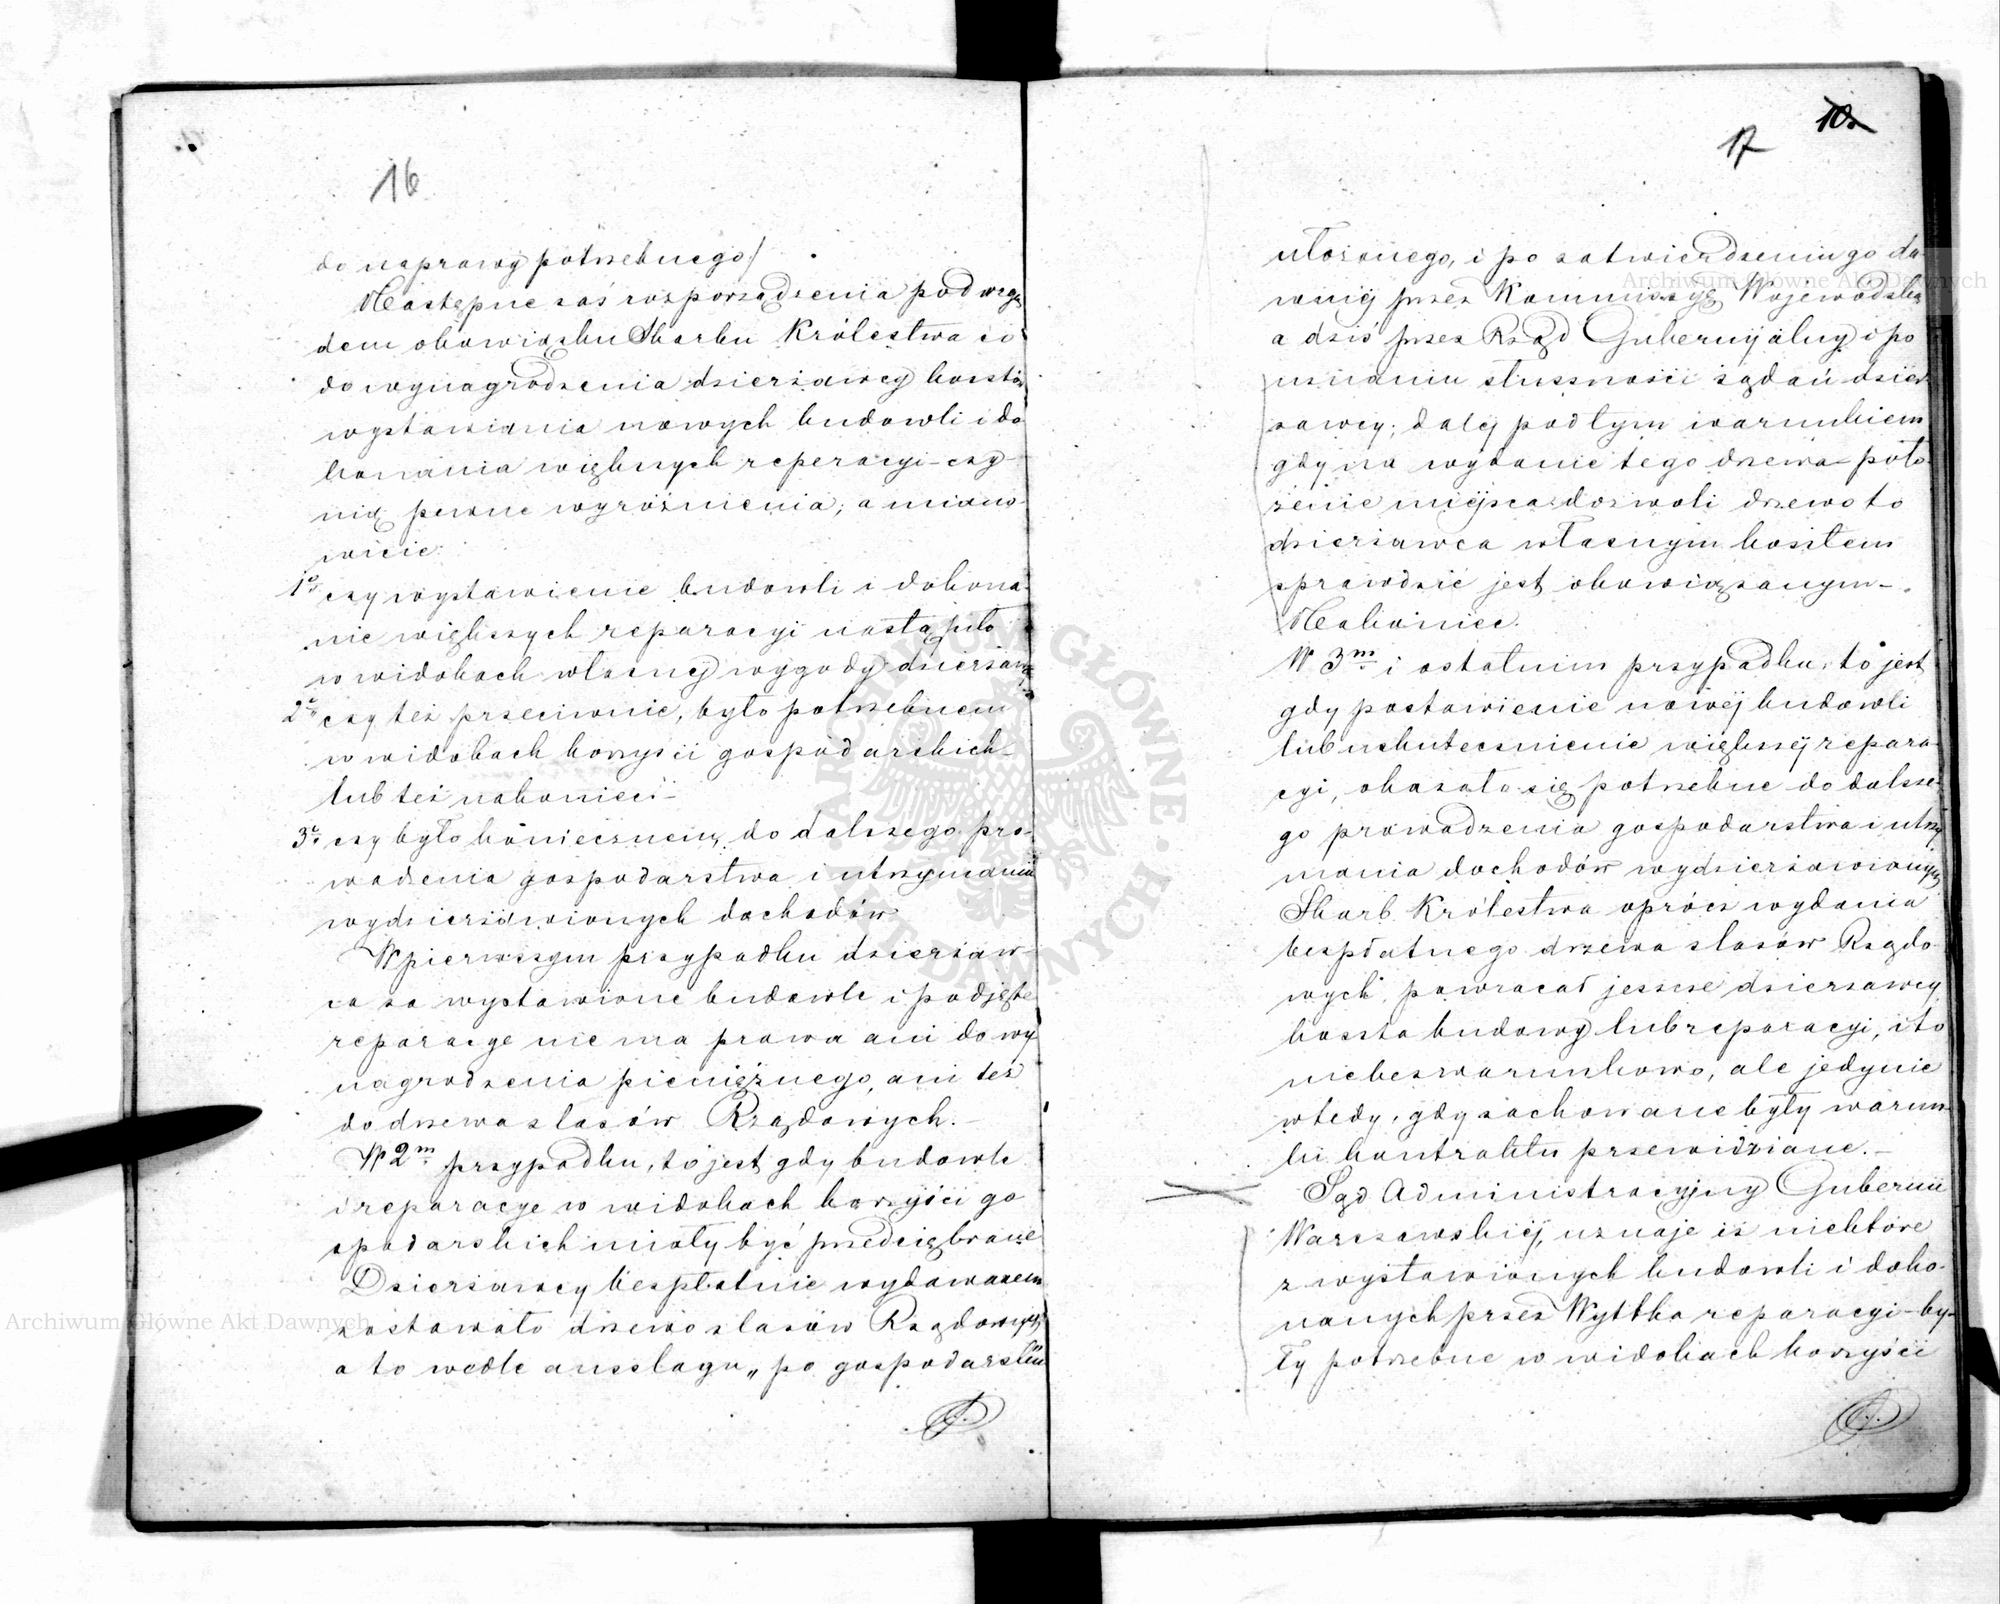 16
do naprawy potrzebnego/
Następne zaś rozporządzenia pod wzglę
dem obowiązku Skarbu Królestwa co
do wynagrodzenia dzierżawcy kosztów
wystawiania nowych budowli i do
konania większych reperacyi - czy
nią pewne wyróżnienia; a miano
wicie:
1o czy wystawienie budowli i dokona
nie większych reparacyi nastąpiło
w widokach własnej wygody dzierżawcy
2o czy też przeciwnie, było potrzebnem
w widokach korzyści gospodarskich -
lub też nakoniec -
3o czy było koniecznem do dalszego pro-
wadzenia gospodarstwa i utrzymania
wydzierżawionych dochodów
W pierwszym przypadku dzierżaw-
ca za wystawione budowle i podjęte
reparacye nie ma prawa ani do wy
nagrodzenia pieniężnego, ani też
do drzewa z lasów Rządowych. -
W 2m przypadku, to jest gdy budowle
i reparacye w widokach korzyści go
spodarskich miały być przedsiębrane
Dzierżawcy bezpłatnie wydawanem
zostawało drzewo z lasów Rządowych
a to wedle anszlagu „ po gospodarsku
17
10.
ułożonego, i po zatwierdzeniu go da
wniej przez Kommissyę Wojewódzką
a dziś przez Rząd Gubernijalny i po
uznaniu słuszności żądań dzier
żawcy; dalej pod tym warunkiem
gdy na wydanie tego drzewa poło
żenie miejsca dozwoli drzewo to
dzierżawca własnym kosztem
sprowadzić jest obowiązanym -.
Nakoniec.
W 3m i ostatnim przypadku, to jest
gdy postawienie nowej budowli
lub uskutecznienie większej repara-
cyi, okazało się potrzebne do dalsze-
go prowadzenia gospodarstwa i utrzy
mania dochodów wydzierżawionych
Skarb Królestwa oprócz wydania
bezpłatnego drzewa z lasów Rządo
wych, powracał jeszcze dzierżawcy
koszta budowy lub reparacyi, i to
niebezwarunkowo, ale jedynie
wtedy, gdy zachowane były warun
ki kontraktu przewidziane. -
Sąd Administracyjny Gubernii
Warszawskiej, uznaje iż niektóre
z wystawionych budowli i doko-
nanych przez Wyttka reparacyi - by-
ły potrzebne w widokach korzyści
Archiwum Główne Akt Dawnych
Archiwum Główne Akt Dawnych
ARCHIWUM GŁÓWNE · AKT DAWNYCH ·